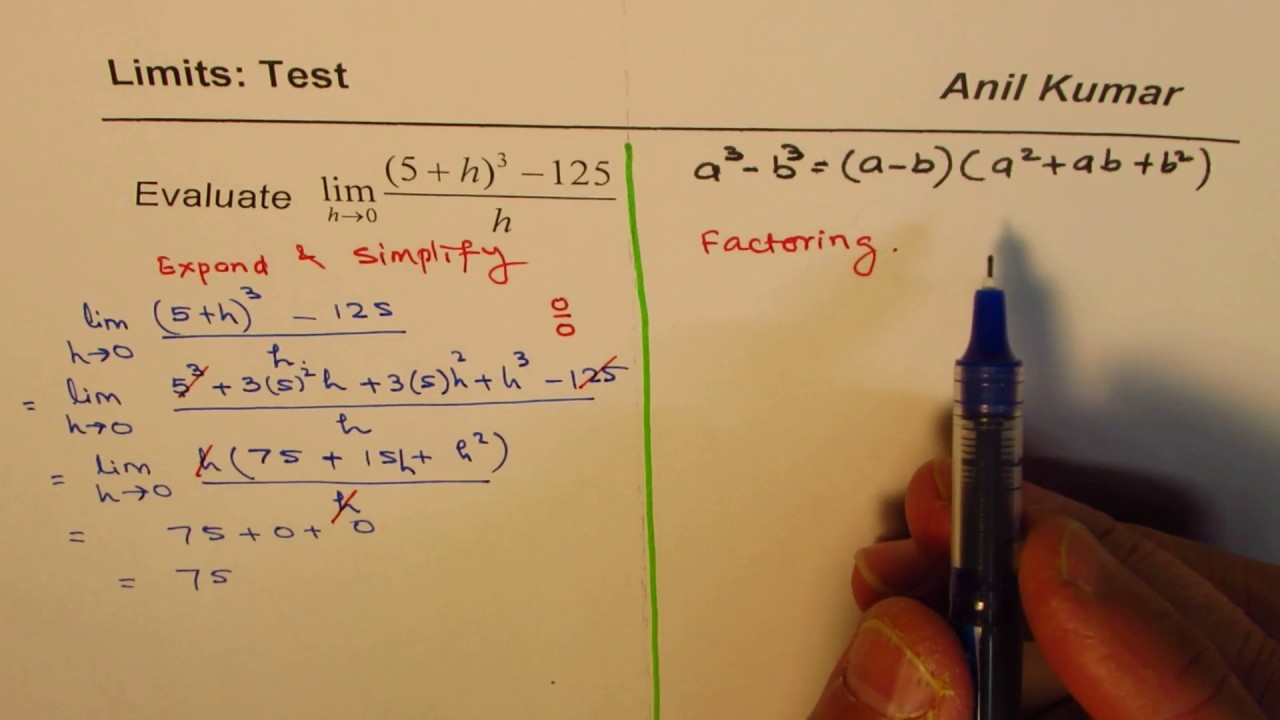 Limits: Test
Anil Kumar
Evaluate lim h→0 (5 + h)³ − 125 / h
Expond & simplify
lim h→0 (5+h)³ − 125 / h
0/0
= lim h→0 5³ + 3(5)²h + 3(5)h² + h³ − 125 / h
= lim h→0 h(75 + 15h + h²) / h
= 75 + 0 + 0
= 75
a³ - b³ = (a-b)(a² + ab + b²)
Factoring.